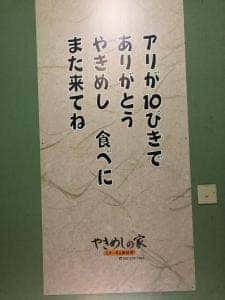 アリが10ひきで
ありがとう
やきめし 食べに
また来てね
やきめしの家